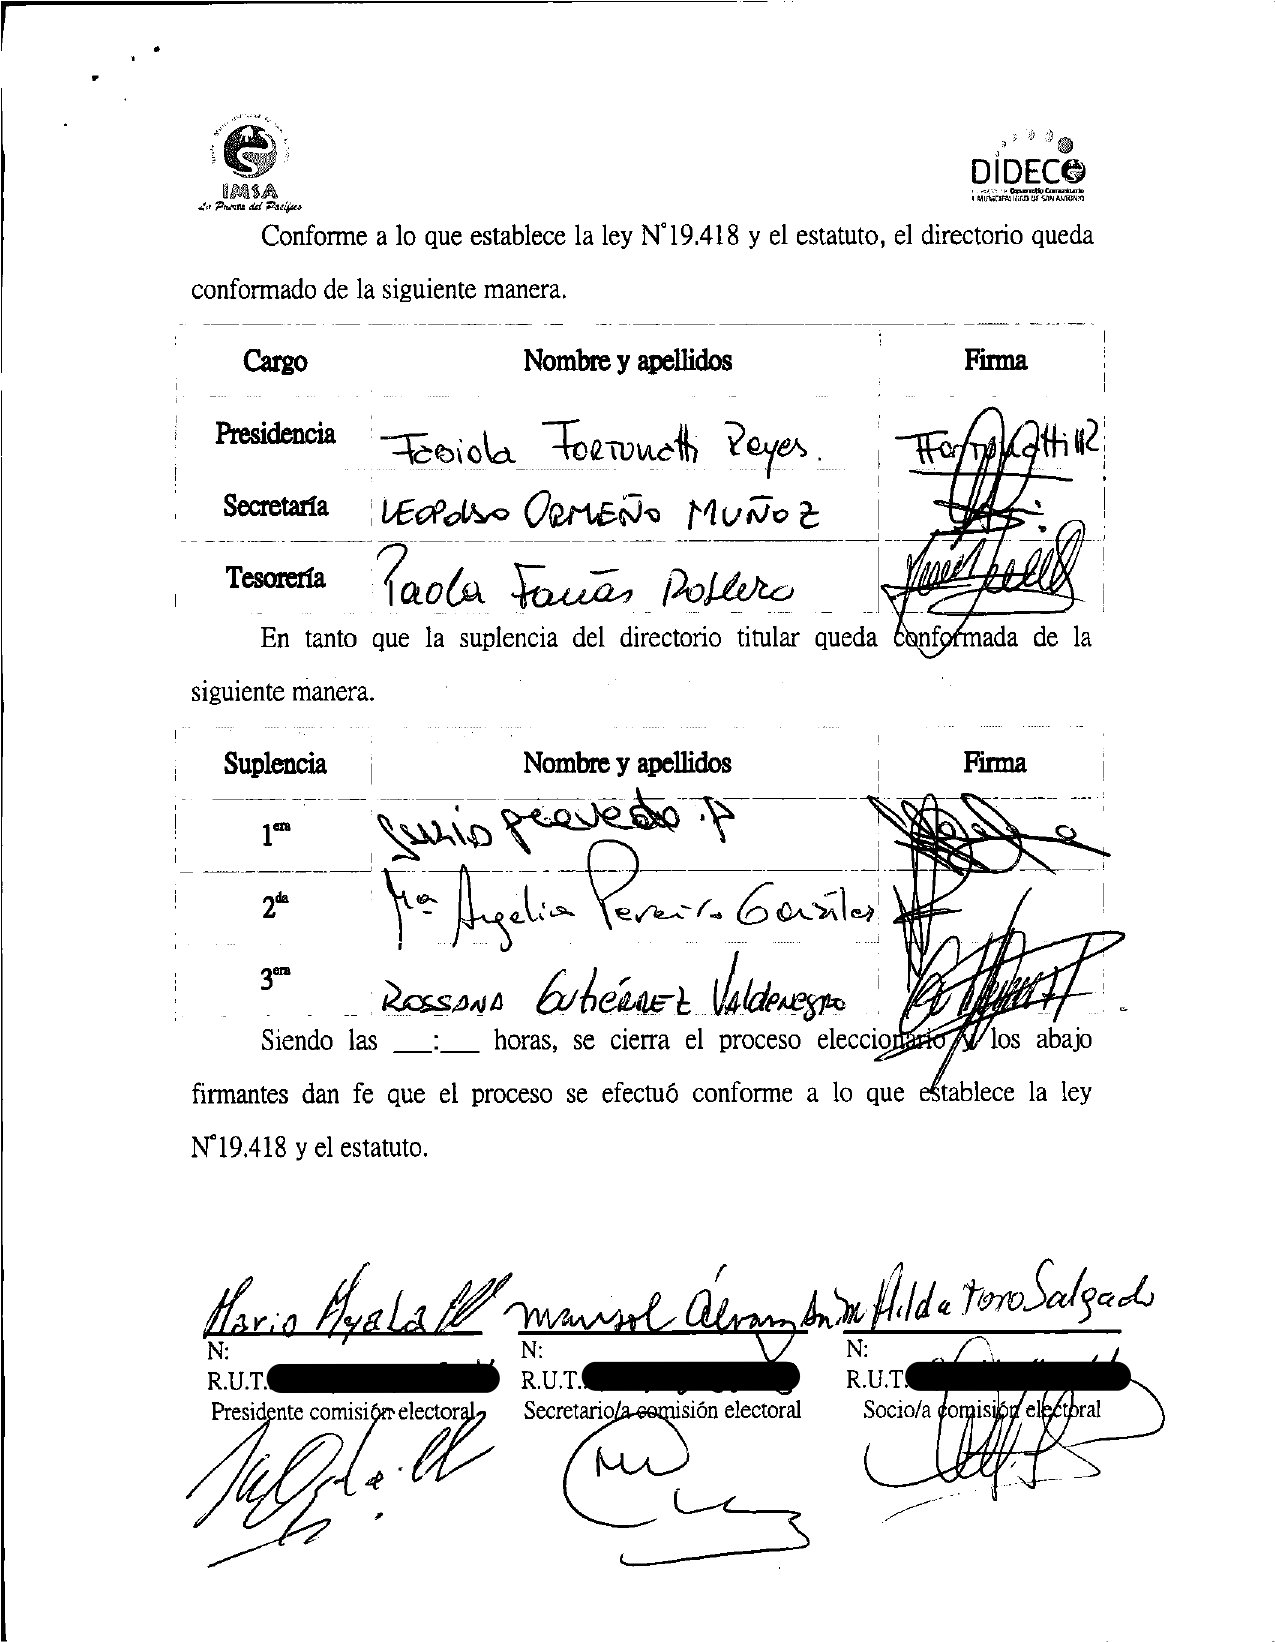 IMSA
La Puerta del Pacífico
DIDECO
Desarrollo Comunitario
I. MUNICIPALIDAD DE SAN ANTONIO
Conforme a lo que establece la ley N°19.418 y el estatuto, el directorio queda
conformado de la siguiente manera.
Cargo Nombre y apellidos Firma
Presidencia Fabiola Fortunatti Reyes.
Secretaría LEOPOLDO ORMEÑO MUÑOZ
Tesorería Paola Farias Poblero
En tanto que la suplencia del directorio titular queda conformada de la
siguiente manera.
Suplencia Nombre y apellidos Firma
1era
2da Mª Angelica Pereira González
3era ROSSANA Gutiérrez Valdenegro
Siendo las __:__ horas, se cierra el proceso eleccionario y los abajo
firmantes dan fe que el proceso se efectuó conforme a lo que establece la ley
N°19.418 y el estatuto.
Mario Ayala Marisol Hilda Toro Salgado
N: N: N:
R.U.T. R.U.T. R.U.T.
Presidente comisión electoral Secretario/a comisión electoral Socio/a comisión electoral